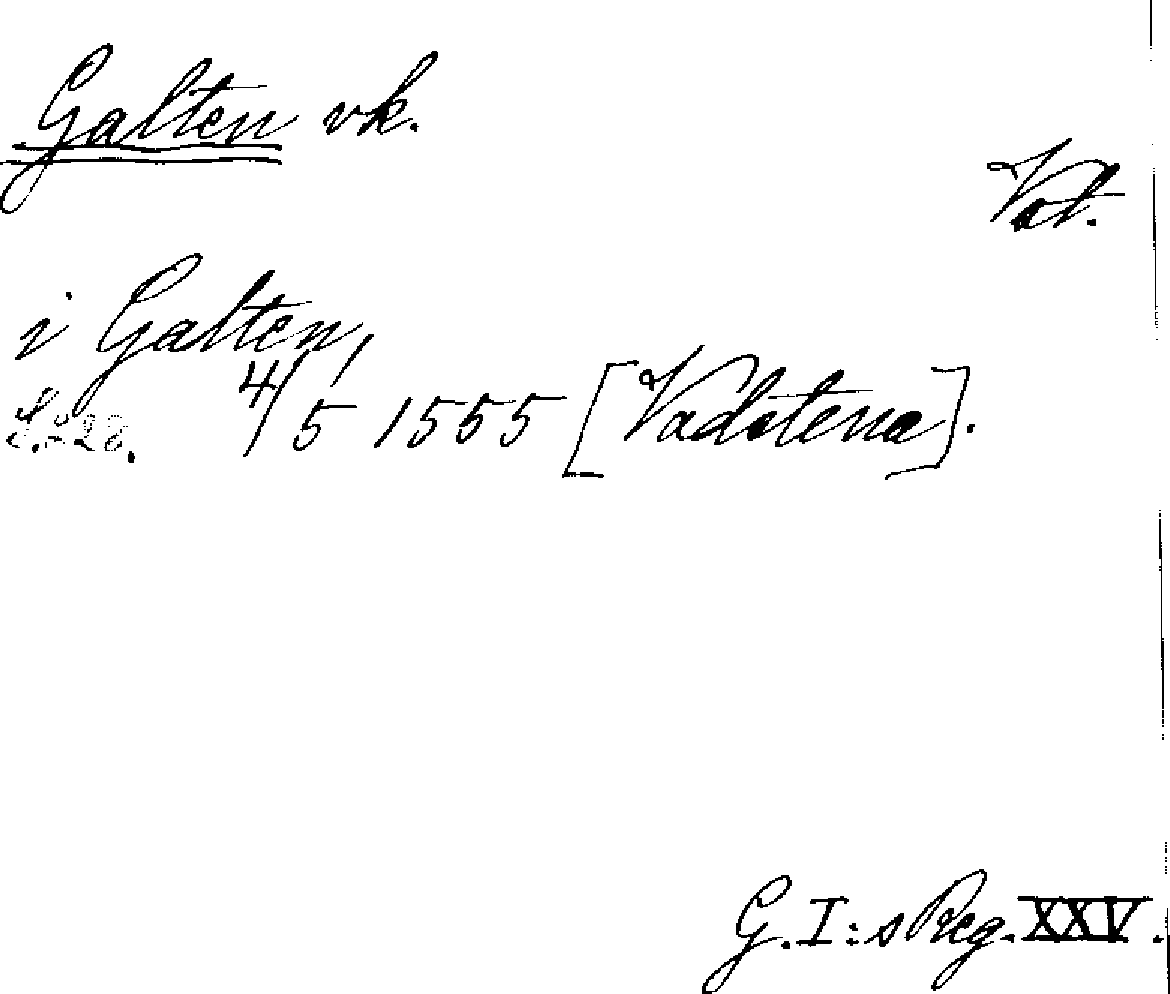 Galten vk.
Vat.
i Galten,
4/5 1555 [Vadstena].
G. I:s Reg. XXV.